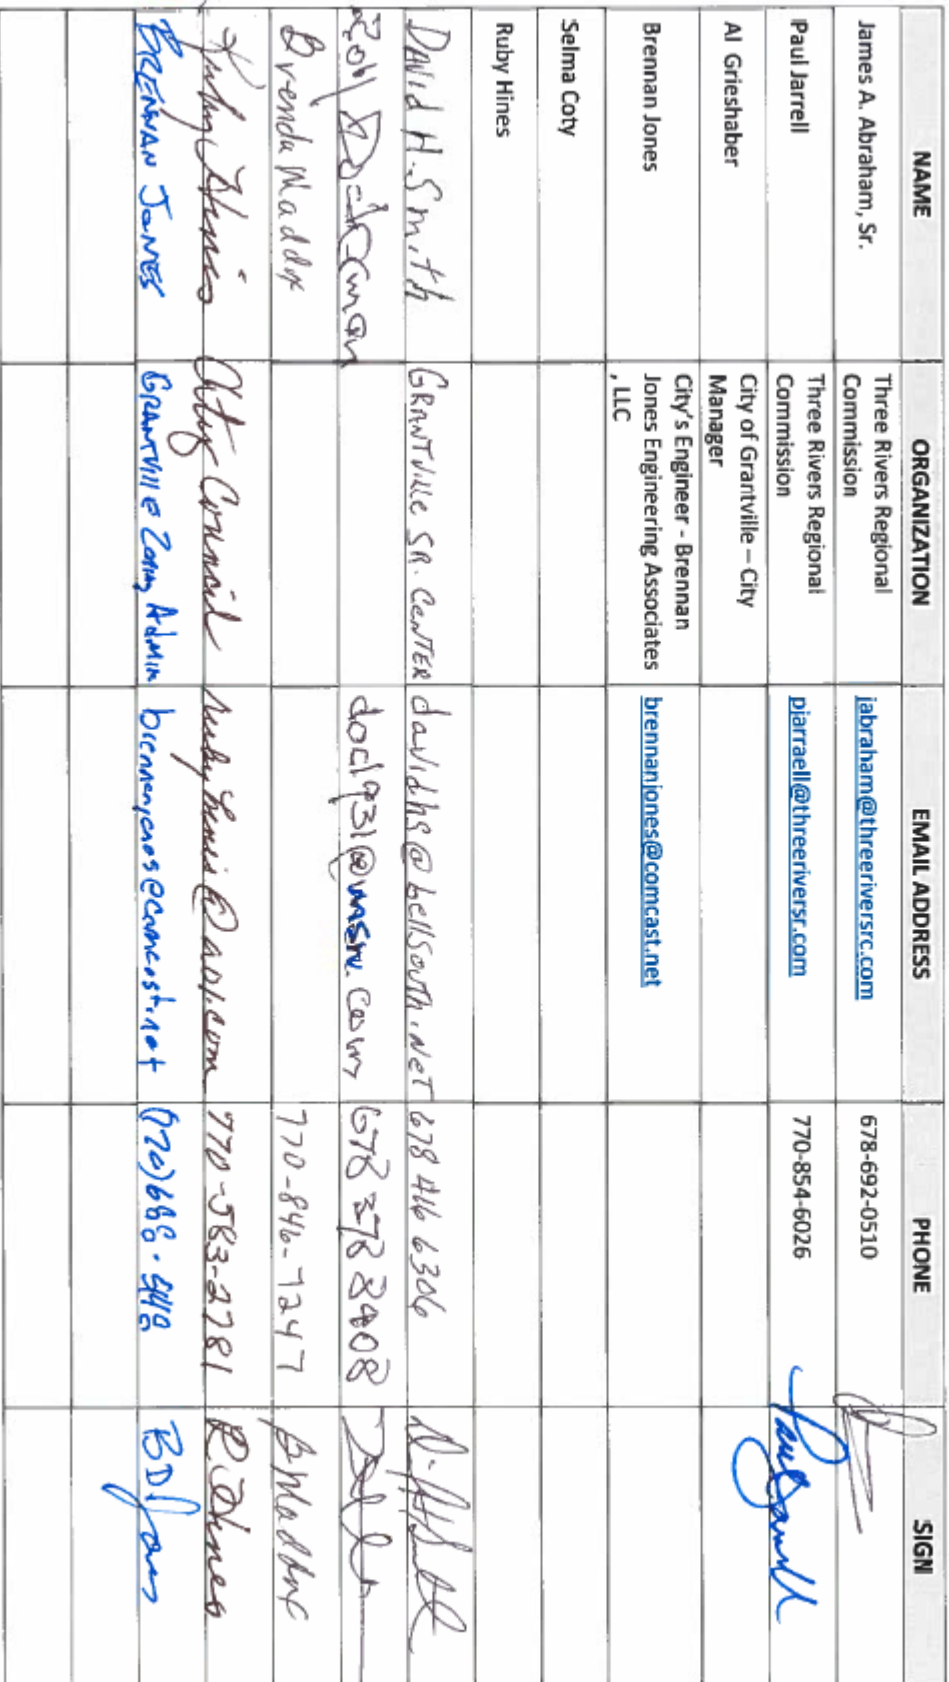 NAME ORGANIZATION EMAIL ADDRESS PHONE SIGN
James A. Abraham, Sr. Three Rivers Regional Commission jabraham@threeriversrc.com 678-692-0510
Paul Jarrell Three Rivers Regional Commission pjarraell@threeriversr.com 770-854-6026 Paul Jarrell
Al Grieshaber City of Grantville – City Manager
Brennan Jones City's Engineer - Brennan Jones Engineering Associates , LLC brennanjones@comcast.net
Selma Coty
Ruby Hines
DAVID H. Smith GRANTVILLE SR. CENTER davidhs@bellsouth.net 678 416 6306
doc1931@msn.com 678 378 8908
Brenda Maddox 770-846-7247 B Maddox
Ruby Hines City Council rubyhines@aol.com 770-583-2781 R. Hines
BRENNAN JONES GRANTVILLE Zoning Admin brennanjones@comcast.net BDJones